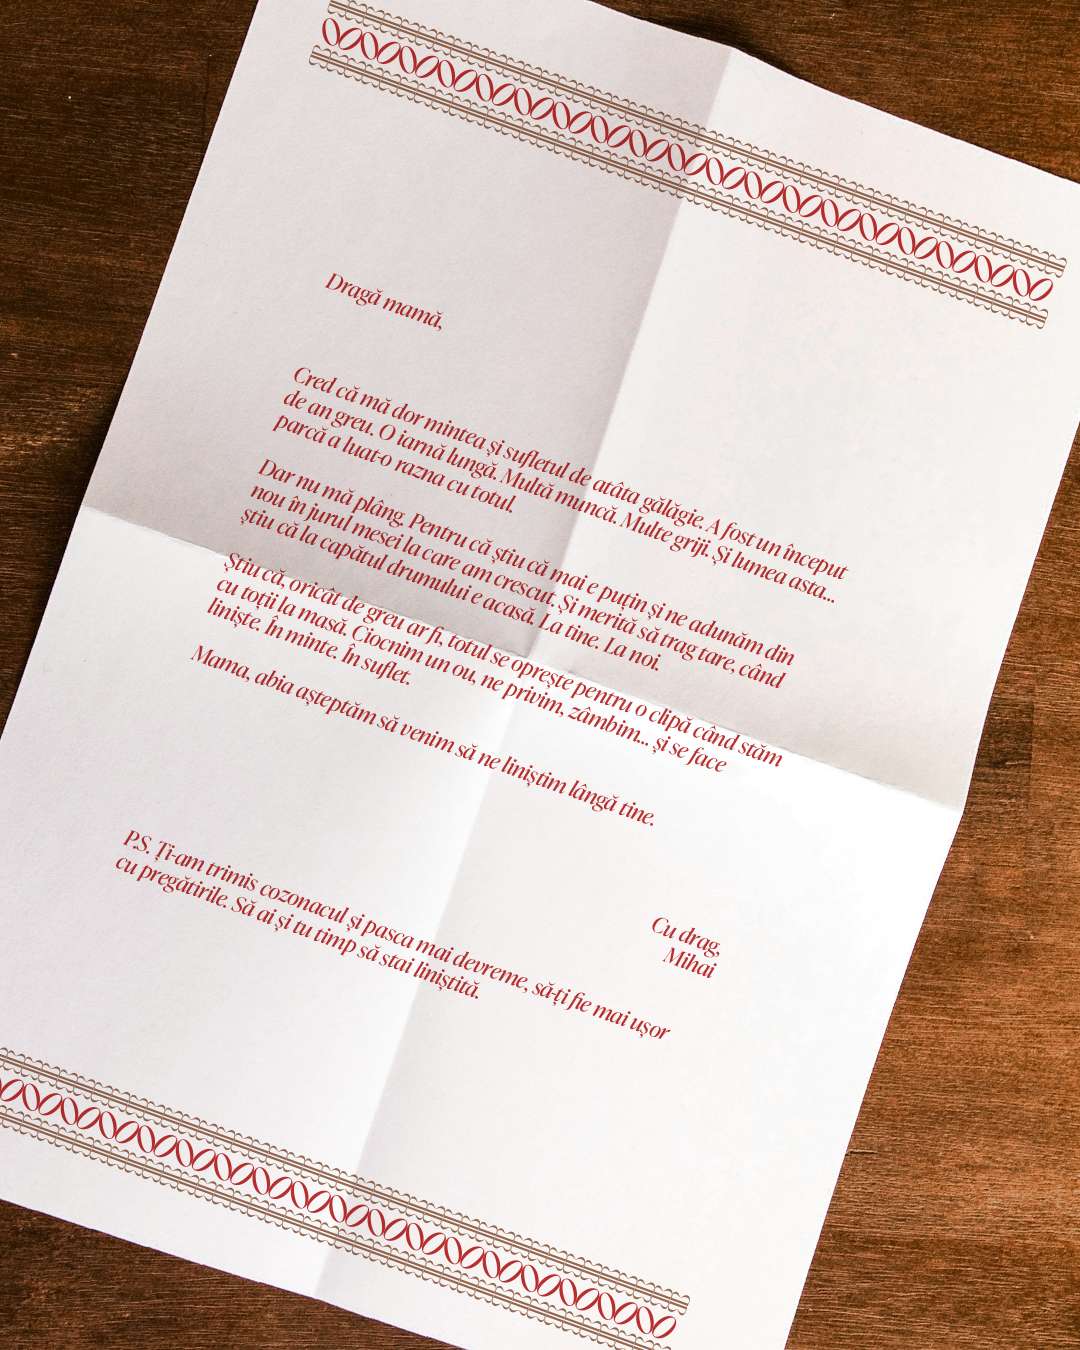 Dragă mamă,
Cred că mă dor mintea și sufletul de atâta gălăgie. A fost un început
de an greu. O iarnă lungă. Multă muncă. Multe griji. Și lumea asta...
parcă a luat-o razna cu totul.
Dar nu mă plâng. Pentru că știu că mai e puțin și ne adunăm din
nou în jurul mesei la care am crescut. Și merită să trag tare, când
știu că la capătul drumului e acasă. La tine. La noi.
Știu că, oricât de greu ar fi, totul se oprește pentru o clipă când stăm
cu toții la masă. Ciocnim un ou, ne privim, zâmbim... și se face
liniște. În minte. În suflet.
Mama, abia așteptăm să venim să ne liniștim lângă tine.
Cu drag,
Mihai
P.S. Ți-am trimis cozonacul și pasca mai devreme, să-ți fie mai ușor
cu pregătirile. Să ai și tu timp să stai liniștită.